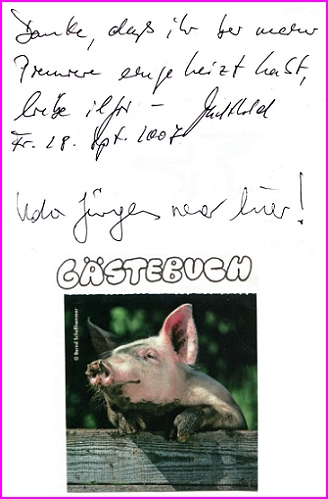 Danke, dass ihr bei meiner
Premiere eingeheizt habt,
liebe
Fr. 28. Sept. 2007
Udo Jürgens war hier!
GÄSTEBUCH
© Bernd Schellhammer